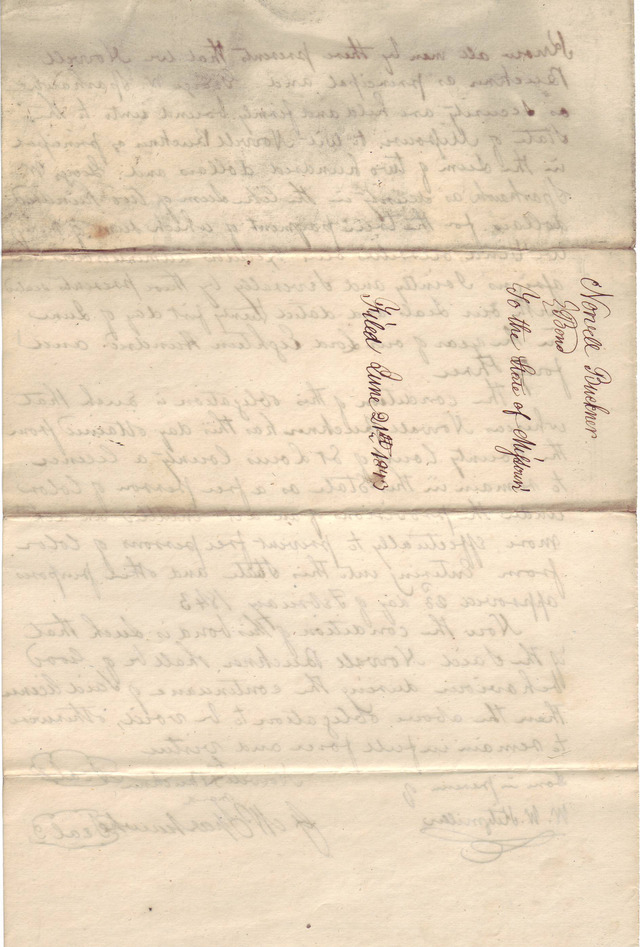 Norvell Buckner
Bond
To the State of Missouri
Filed June 21st 1843
Know all men by these present that we Norvell
Buckner as principal and Sparhawk
as security are held and firmly bound unto the
State of Missouri to wit Norvell Buckner as principal
in the sum of two hundred dollars and
Sparhawk as security in the like sum of two hundred
dollars for the payment of which
we bind ourselves
Jointly and severally by these presents
day of June
in the year of our Lord eighteen hundred and
forty three
the condition of this obligation is such that
whereas Norvell Buckner has this day obtained from
the County Court of St Louis County a licence
to remain in the State as a free person of color
under the provisions of an act entitled an act
more effectually to prevent free persons of color
from entering into this State and other purposes
approved 23 day of February 1843
Now the condition of this bond is such that
if the said Norvell Buckner shall be of good
behaviour during the continuance of said licence
then the above obligation to be void, otherwise
to remain in full force and virtue
in presence of
Sparhawk Seal